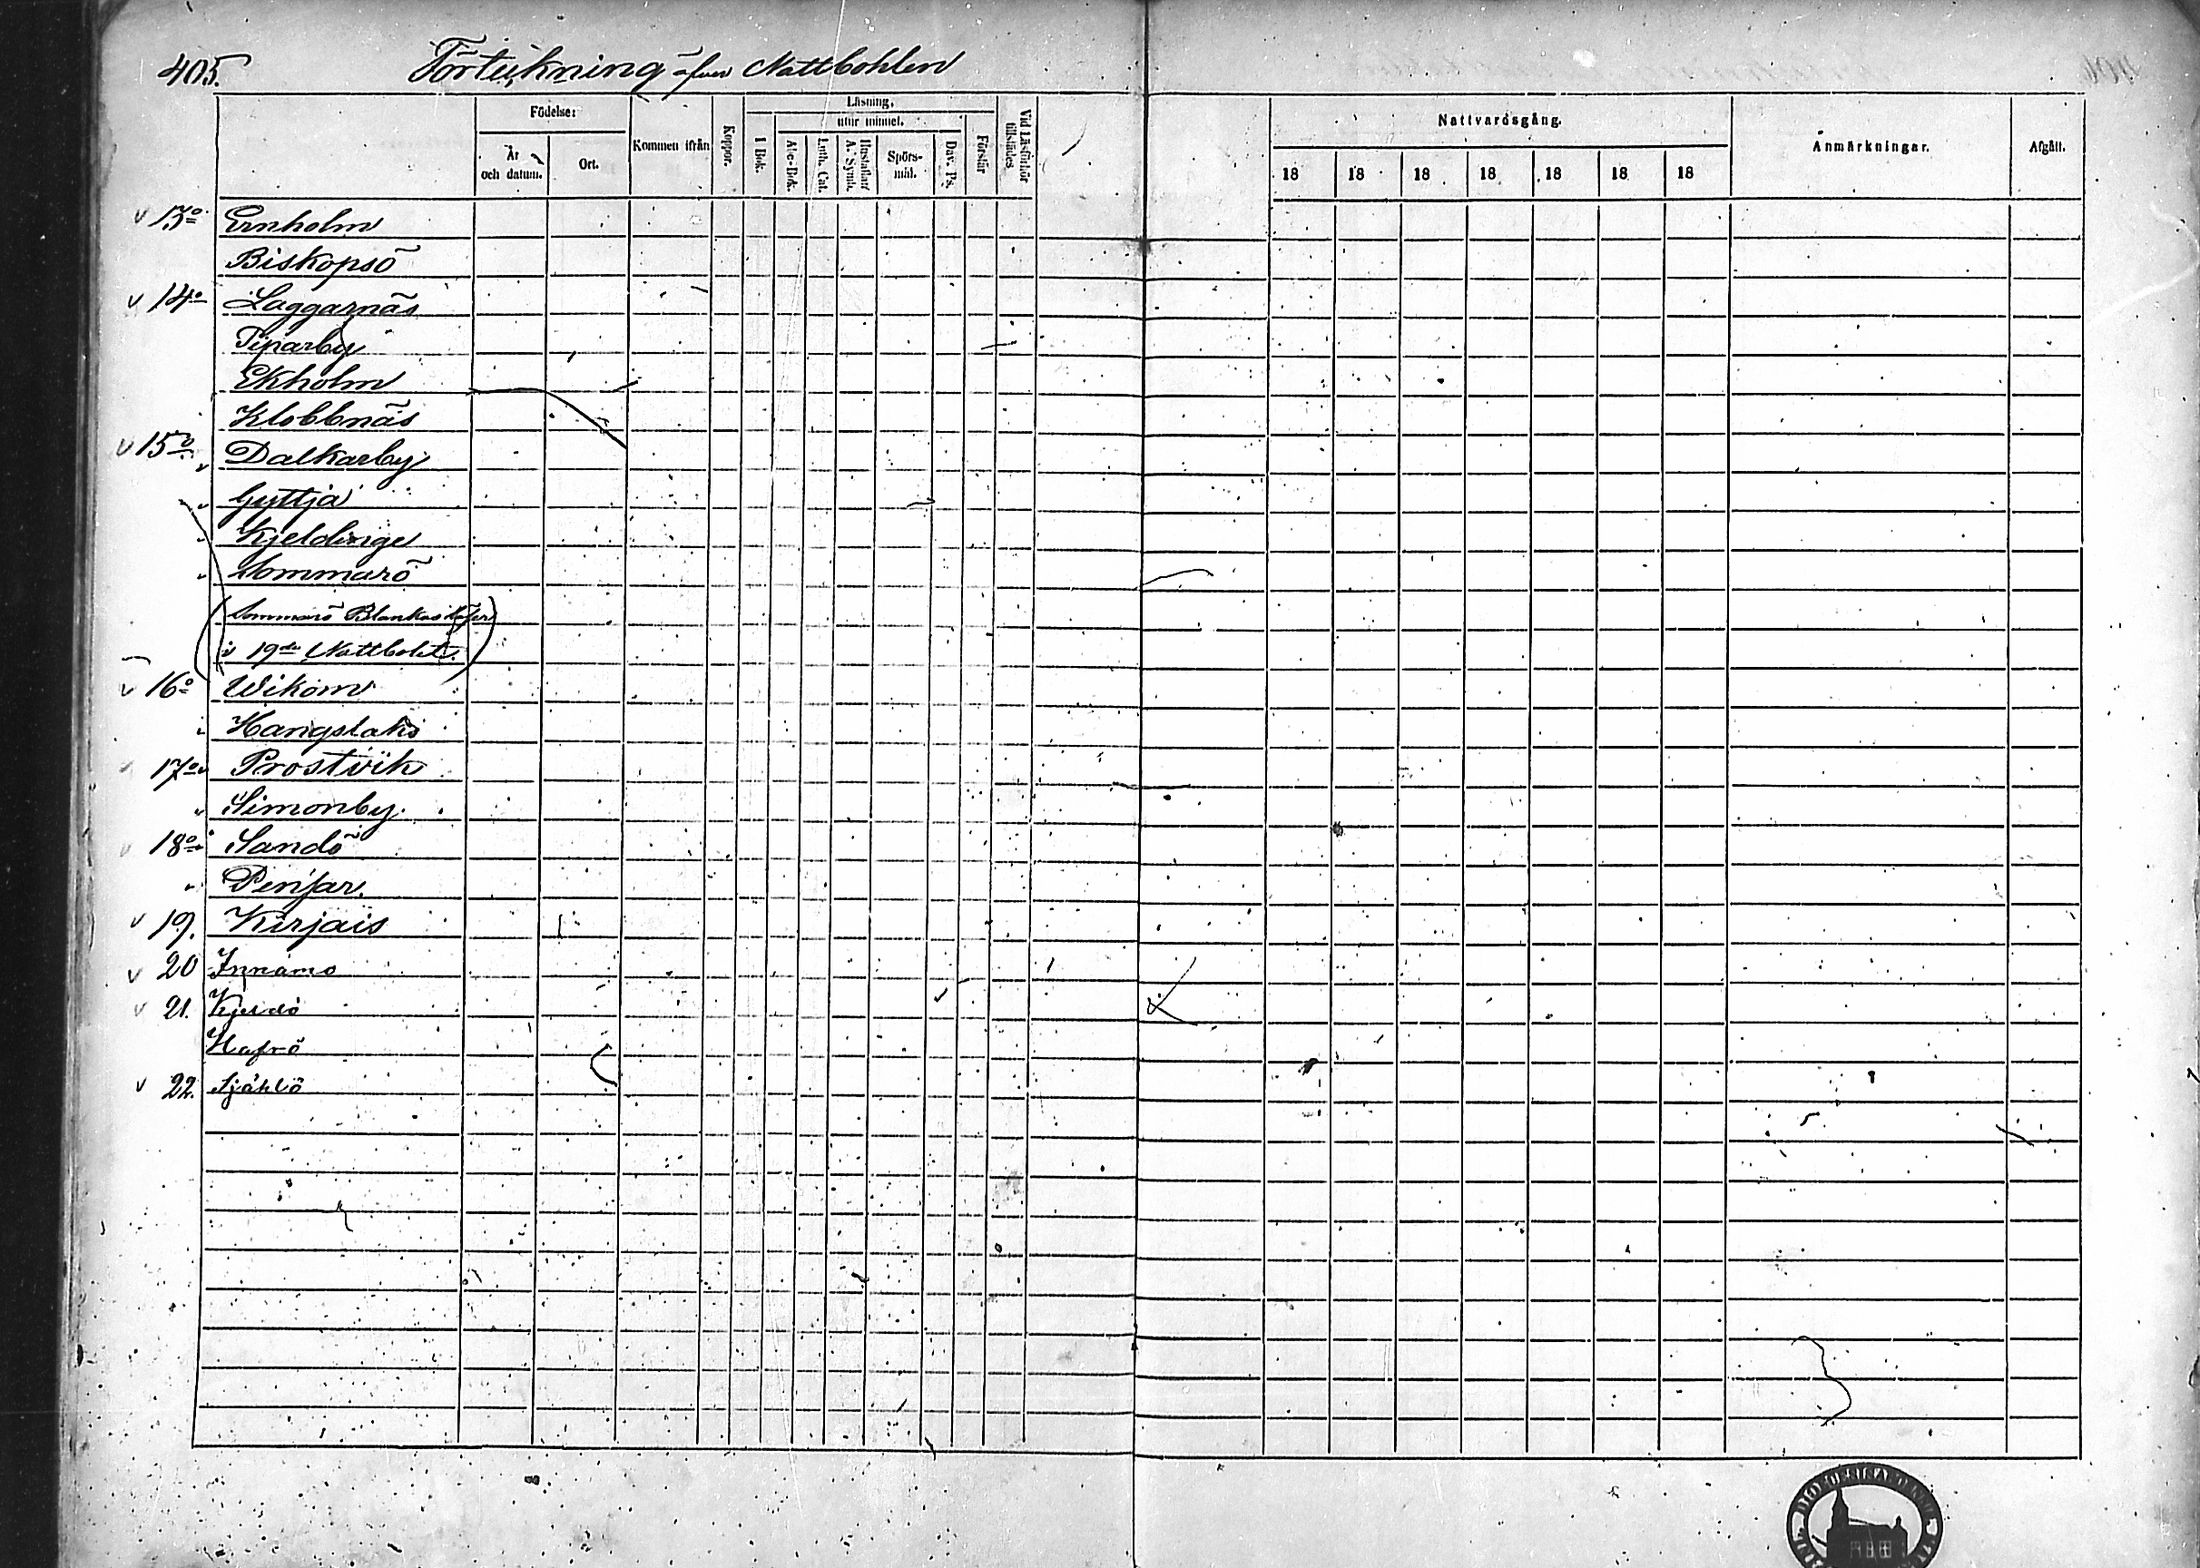 405.
Förteckning öfver Nattbohlen
Födelse:
År och datum.
Ort.
Kommen ifrån
Koppor.
Läsning,
I Bok.
utur minnet.
Abc-Bok.
Luth. Cat.
Hustaflan/ A. Symb.
Spörs-mål.
Dav. Ps.
Förstår
Vid Läsförhör tillstädes
Nattvardsgång.
18 18 18 18 18 18 18
Anmärkningar.
Afgått.
13o Ernholm
Biskopsö
14o Laggarnäs
Piparby
Ekholm
Klobbnäs
15o Dalkarby
Gyttja
Kjeldinge
Sommarö
(Sommarö Blankas
i 19de Nattbohlt.)
16o Wikom
Hangslaks
17o Prostvik
Simonby
18o Sandö
Pensar.
19. Kirjais
20 Innamo
21. Kjeldö
Hafrö
22. Själlö